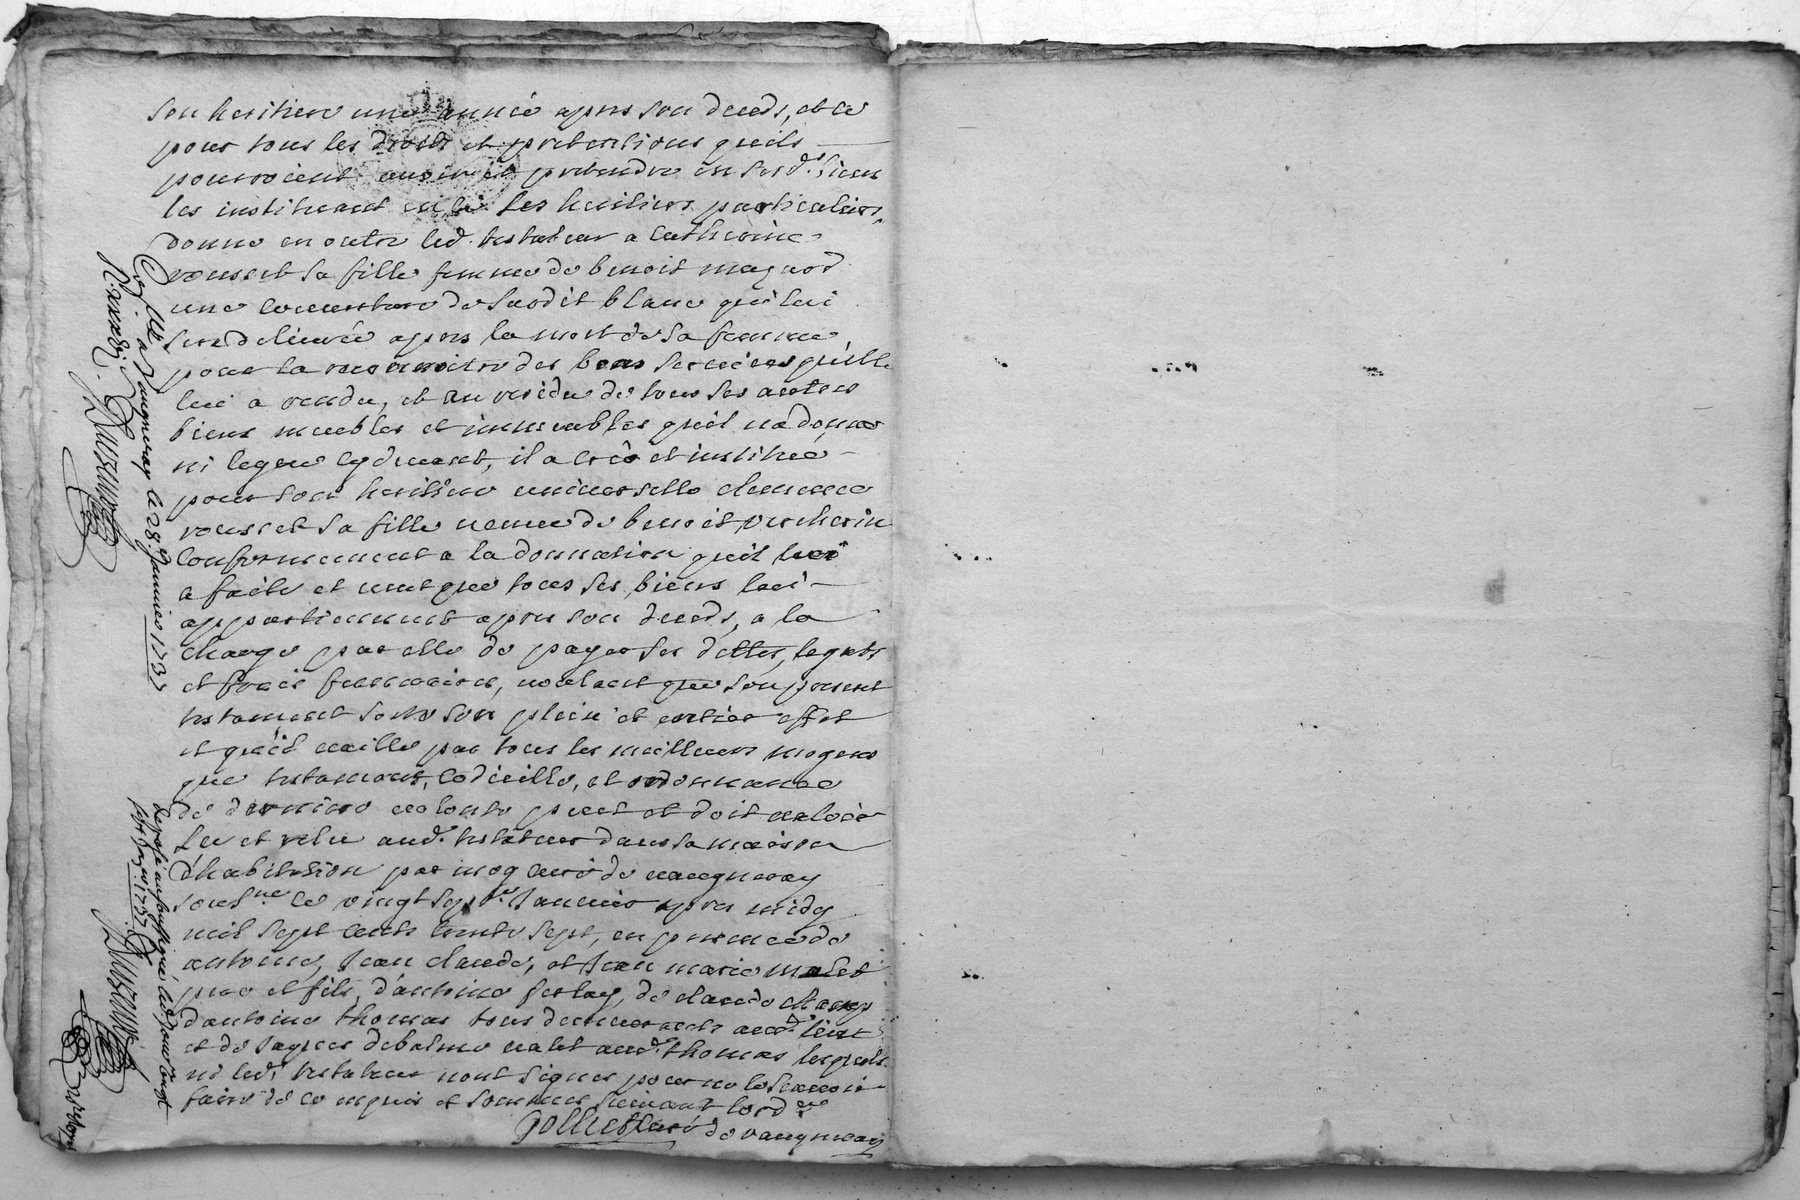 son heritiere une année apres son deceds, et ce
pour tous les droits et pretentions quils
pourroient avoir et pretendre en sesd.s biens
les instituant en ce ses heritiers particuliers,
donne en outre led. testateur a catherine
rousset sa fille femme de benoit magnod
une couverture de sardit blanc qui lui
sera delivrée apres la mort de sa femme
pour la reconnoitre des bons services quelle
lui a rendu, et au residu de tous ses autres
biens meubles et immeubles quil na donné
ni legué cydevant, il a créé et institué
pour son heritiere universelle clemence
rousset sa fille veuve de benoit percherin
conformement a la donnation quil lui
a faite et veut que tous ses biens lui
appartiennent apres son deceds, a la
charge par elle de payer ses dettes, legats
et frais funeraires, voulant que son present
testament sorte son plein et entier effet
et quil vaille par tous les meilleurs moyens
que testament, codicille, et ordonnance
de derniere volonté peut et doit valoir
leu et relu aud. testateur dans sa maison
d'habitation par moy curé de vaugneray
souss.né le vingt sept.e Janvier apres midy
mil sept cents trente sept, en presence de
antoine, Jean claude, et Jean marie molet
pere et fils, d'antoine ferlay, de claude
d'antoine thomas tous demeurants aud. lieu
et de Jaques debalme valet aud. thomas lesquels
ni led. testateur nont signés pour ne le scavoir
faire de ce enquis et sommés suivant lord.ce
Golliet curé de vaugneray
C.lé a Vaugneray le 28.e Janvier 1737
R.
Deposé au soussigné led. Jour vingt
huit Janvier 1737